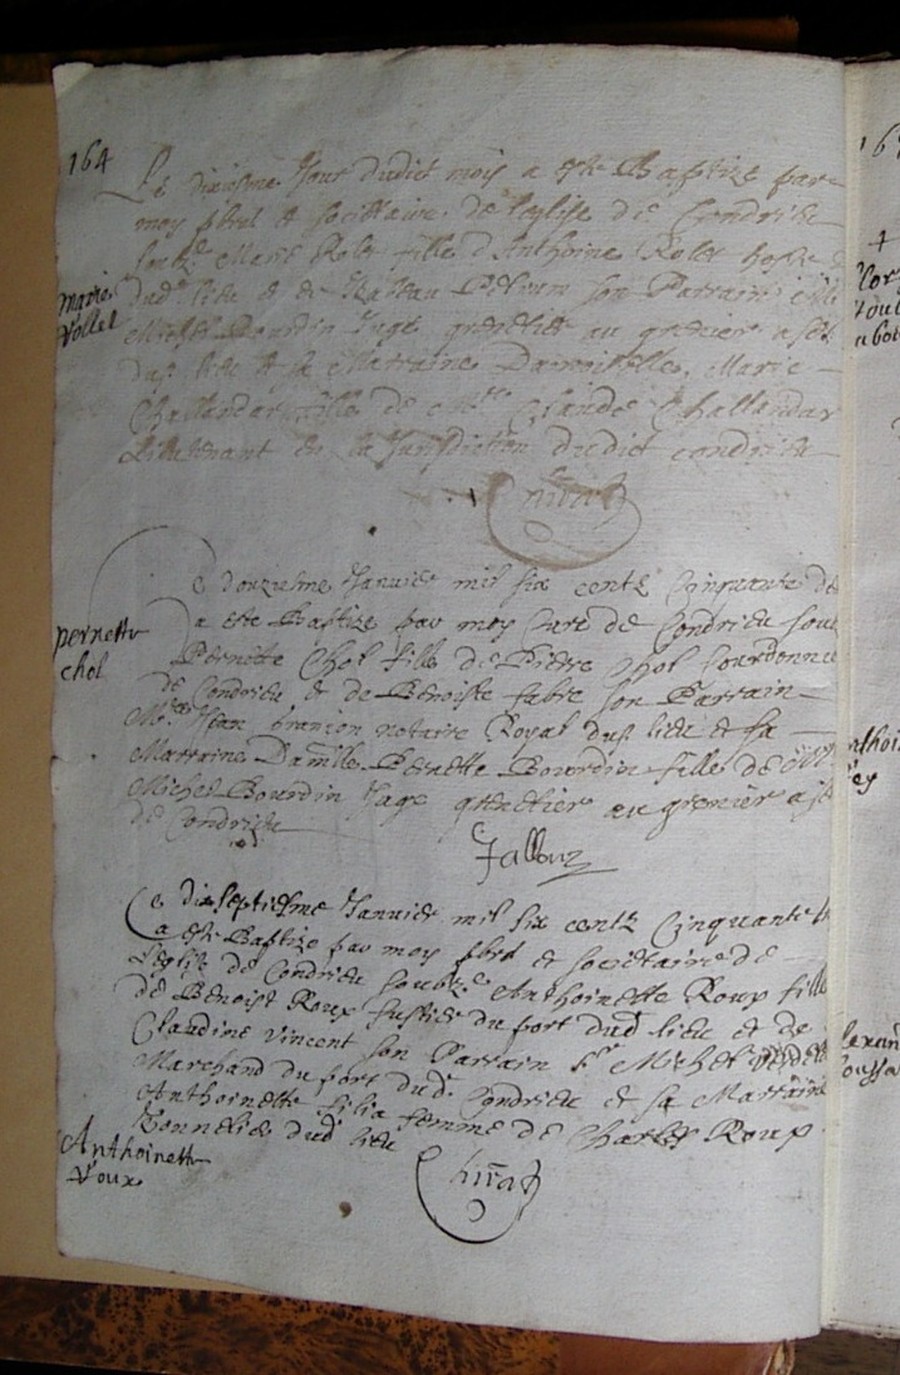 164
Le dixiesme Jour dudict mois a este Baptize par
moy pbre et societaire de leglise de Condrieu
soubz Marie Rolet fille d'Anthoine Rolet hoste
marie
rollet
dud lieu et de son Parrain
Michel Bourdin Juge grenetier au grenier a sel
dud lieu et sa Marraine Damoiselle Marie
Challandar fille de Mre Claude Challandar
Lieutenant en la Jurisdiction dudict condrieu
Ce douziesme Janvier mil six centz Cinquante
a este Baptize par moy Curé de Condrieu soubz
pernette
chol
Pernette Chol fille de Pierre Chol Courdonnier
de Condrieu et de Benoiste fabre son Parrain
Mre Jean notaire Royal dud lieu et sa
Marraine Damlle Pernette Bourdin fille de
Michel Bourdin Juge grenetier au grenier a
de Condrieu
Ce dixseptiesme Janvier mil six centz Cinquante
a este Baptize par moy pbre et societaire de
Leglise de Condrieu soubze Anthoinette Roux fille
de Benoist Roux fustier du port dud lieu et de
Claudine Vincent son Parrain Sr Michel
Marchand du port dud Condrieu et sa Marraine
Anthoinette filia femme de Charles Roux
Tonnelier dud lieu
Anthoinette
roux